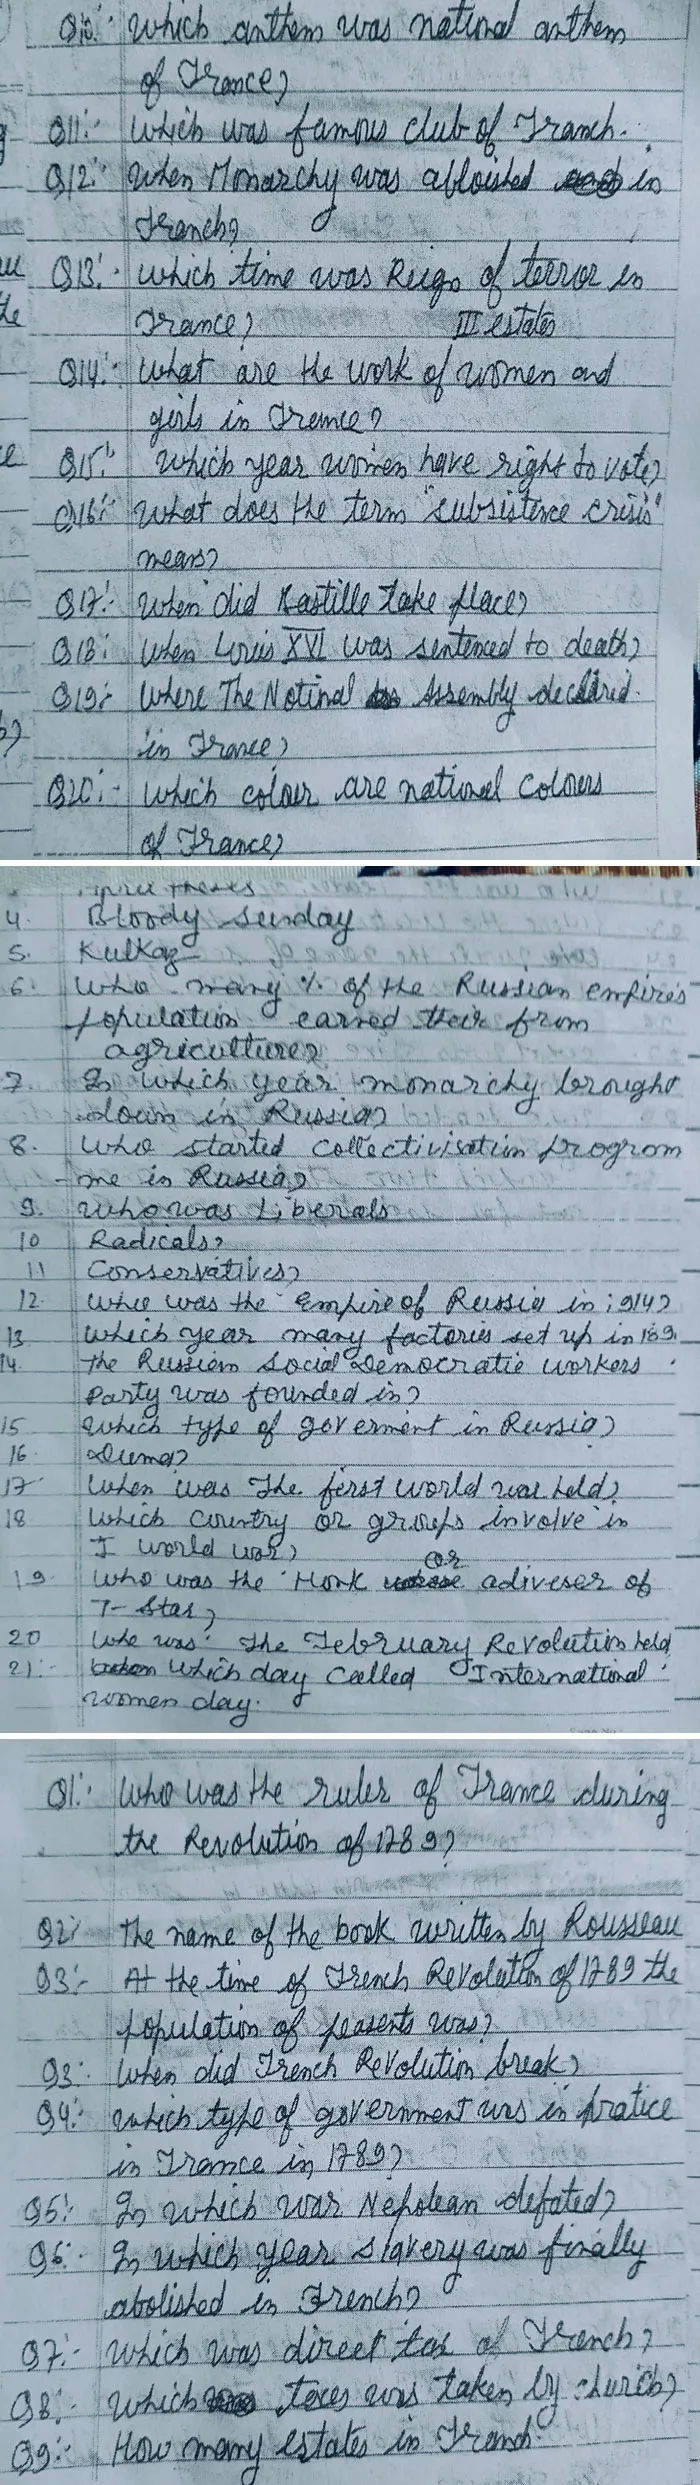 Q10:- Which anthem was national anthem
of France?
Q11:- Which was famous club of Franch.
Q12:- When Monarchy was abloished in
Franch?
Q13:- Which time was Reign of terror in
France? III estates
Q14:- What are the work of women and
girls in France?
Q15:- Which year women have right to vote?
Q16:- What does the term "subsistence crisis"
means?
Q17:- When did Bastille take place?
Q18:- When Louis XVI was sentenced to death?
Q19:- Where The Notinal Assembly declared.
in France?
Q20:- Which colour are national colours
of France?
4. Bloody sunday
5. Kulkaz
6. Who many % of the Russian empires
population earned their from
agriculture?
7. In which year monarchy brought
down in Russia?
8. Who started collectivisation program
me in Russia?
9. Who was Liberals
10 Radicals?
11 Conservatives?
12. Who was the Empire of Russia in 1914?
13 Which year many factories set up in 189.
14. The Russian Social Democratic workers
Party was founded in?
15 Which type of goverment in Russia?
16. Duma?
17 When was The first world war held?
18 Which Country or groups involve in
I world war?
19. Who was the Monk or adiveser of
T-Star?
20 Who was The February Revolution held
21:- Which day called International
women day.
Q1:- Who was the ruler of France during
the Revolution of 1789?
Q2:- The name of the book written by Rousseau
Q3:- At the time of French Revolution of 1789 the
population of peasents was?
Q3:- When did French Revolution break?
Q4:- Which type of government was in pratice
in France in 1789?
Q5:- In which war Nepolean defated?
Q6:- In which year slavery was finally
abolished in French?
Q7:- Which was direct tax of French?
Q8:- Which taxes was taken by church?
Q9:- How many estates in Franch.